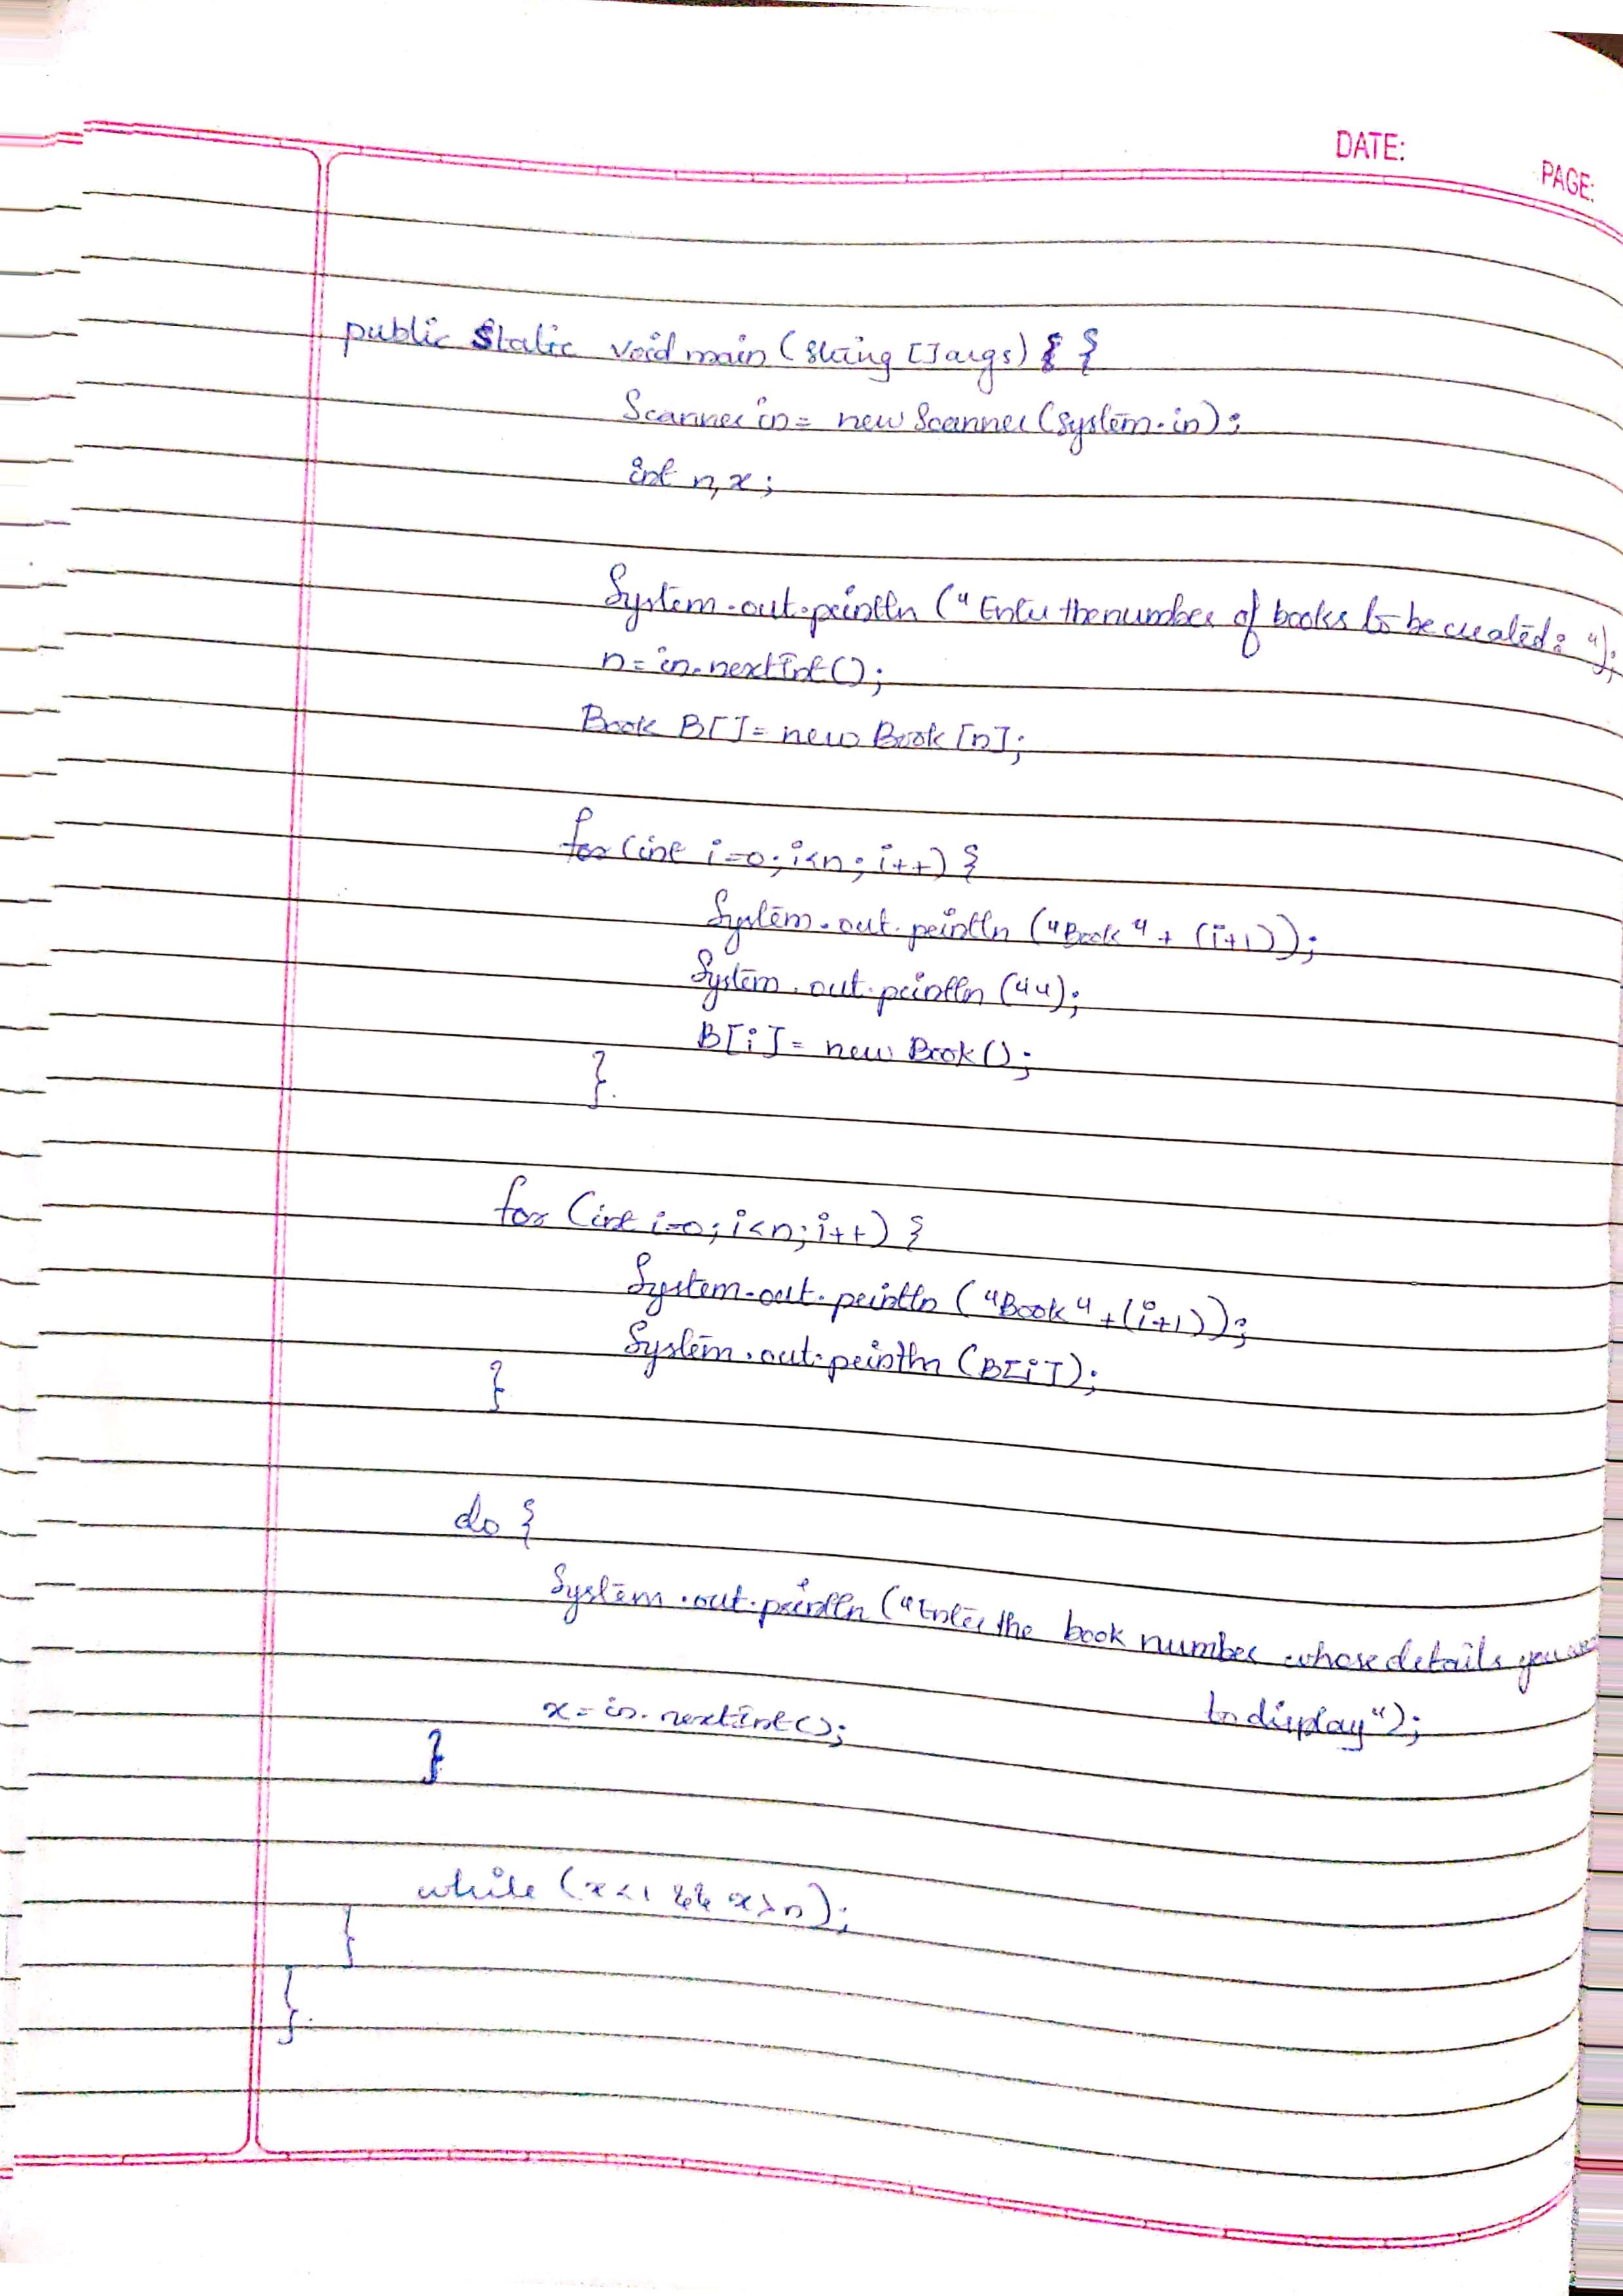 DATE:
PAGE:
public static void main (String [] args) { {
Scanner in = new Scanner (System.in);
int n, x;
System.out.println ("Enter the number of books to be created: ");
n = in.nextInt ();
Book B[] = new Book [n];
for (int i=0; i<n; i++) {
System.out.println ("Book" + (i+1));
System.out.println ("");
B[i] = new Book ();
}
for (int i=0; i<n; i++) {
System.out.println ("Book" + (i+1));
System.out.println (B[i]);
}
do {
System.out.println ("Enter the book number whose details you
to display");
x = in.nextInt ();
}
while (x<1 && x>n);
}
}